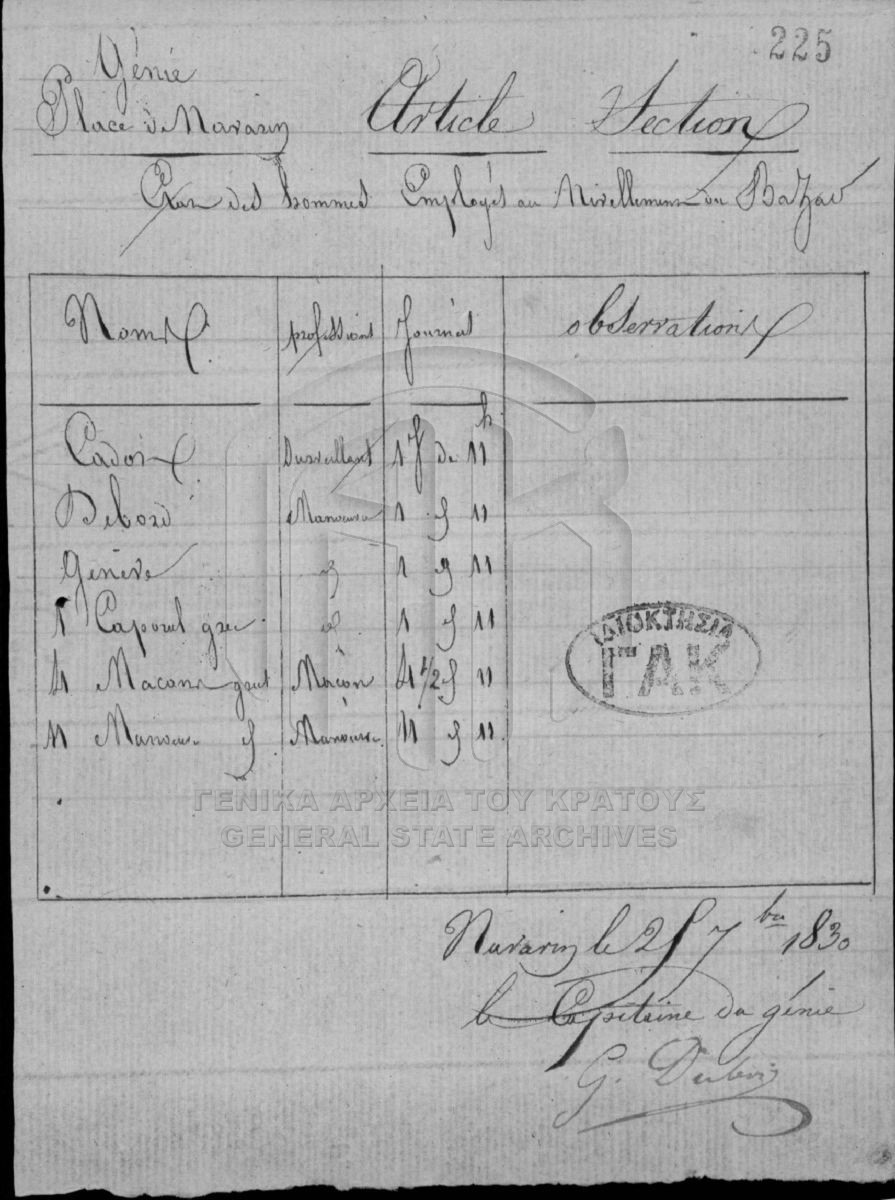 225
Génie
Place de Navarin Article Section
Etat des hommes Employés au Nivellement du Bazard
Noms professions Journés observations
h
Cadoin Surveillant 1 J de 11
Debord Manoeuvre 1 11
Genève 1 11
1 Caporal grec 1 11
4 Macons Maçon 4 1/2 11
11 Manoeuvre Manoeuvre 11 11
ΙΔΙΟΚΤΗΣΙΑ
ΓΑΚ
ΓΕΝΙΚΑ ΑΡΧΕΙΑ ΤΟΥ ΚΡΑΤΟΥΣ
GENERAL STATE ARCHIVES
Navarin le 25 7bre 1830
le Capitaine du génie
G.